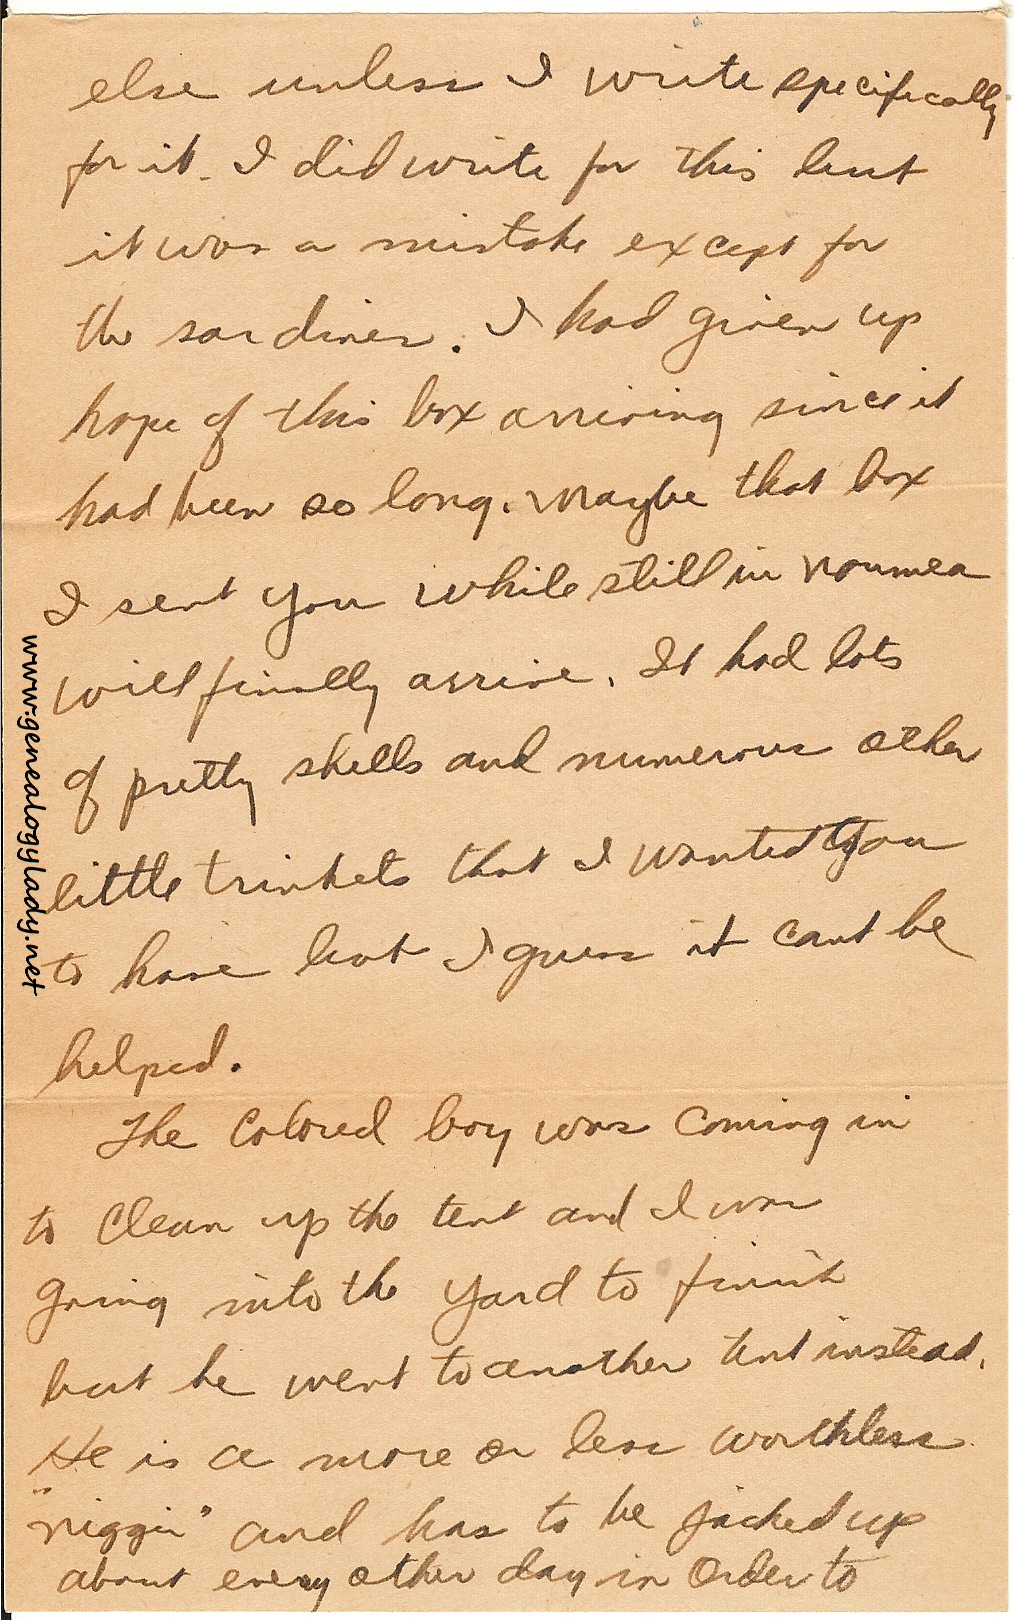 else unless I write specifically
for it. I did write for this but
it was a mistake except for
the sardines. I had given up
hope of this box arriving since it
had been so long. Maybe that box
I sent you while still in Noumea
will finally arrive. It had lots
of pretty shells and numerous other
little trinkets that I wanted you
to have but I guess it cant be
helped.
The Colored boy was coming in
to clean up the tent and I was
going into the yard to finish
but he went to another tent instead.
He is a more or less worthless
"niggir" and has to be jacked up
about every other day in order to
www.genealogylady.net